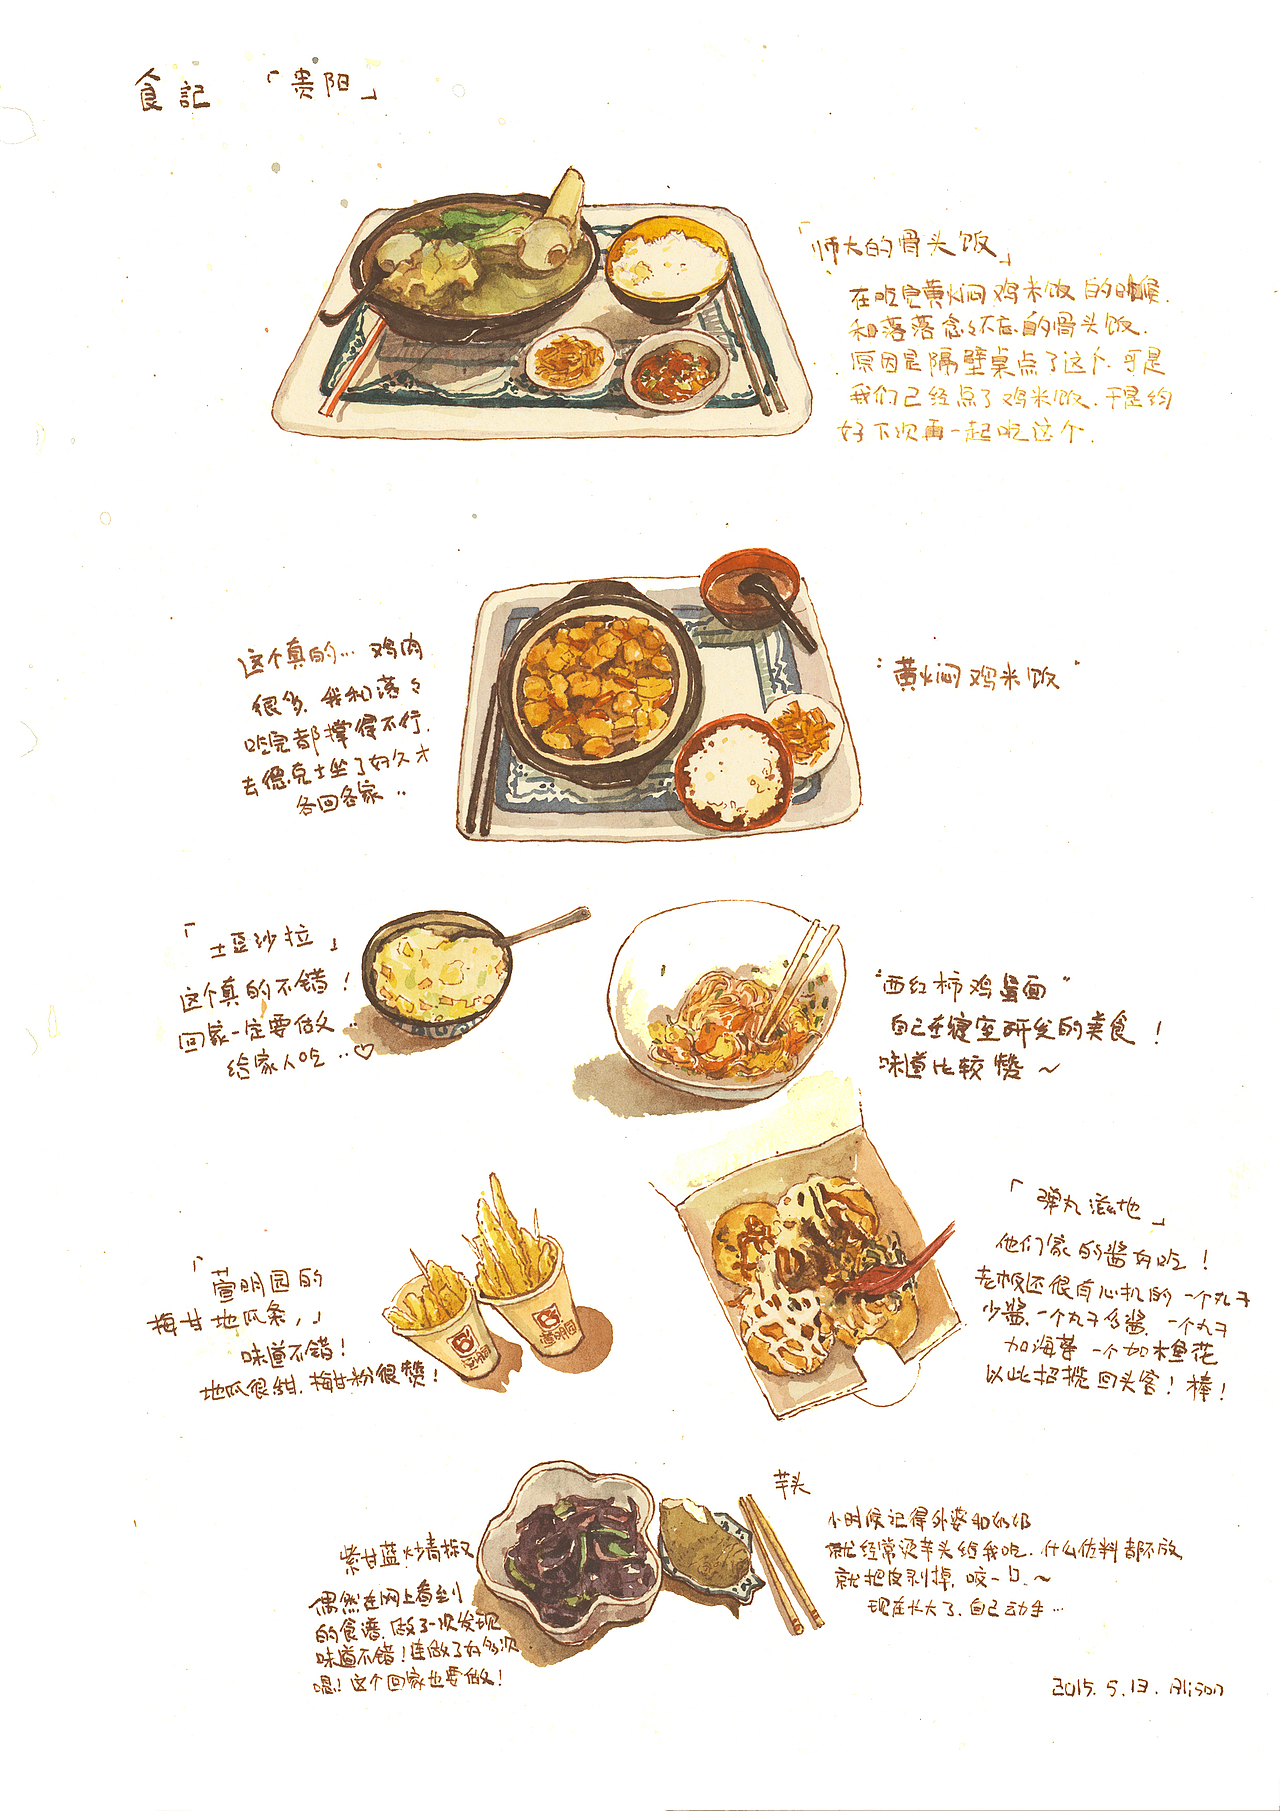 食記 「贵阳」
「师大的骨头饭」
在吃完黄焖鸡米饭的时候.
和落落念々不忘的骨头饭.
原因是隔壁桌点了这个.可是
我们已经点了鸡米饭.于是约
好下次再一起吃这个.
这个真的… 鸡肉
很多.我和落々
吃完都撑得不行.
去德克士坐了好久才
各回各家..
"黄焖鸡米饭"
「土豆沙拉」
这个真的不错!
回家一定要做..
给家人吃..♡
"西红柿鸡蛋面"
自己在寝室研发的美食!
味道比较赞~
「萱明园的
梅甘地瓜条,」
味道不错!
地瓜很甜.梅甘粉很赞!
萱明园
萱明园
「弹丸滋地」
他们家的酱好吃!
老板还很有心机的一个丸子
少酱.一个丸子多酱.一个丸子
加海苔 一个加木鱼花
以此招揽回头客!棒!
紫甘蓝炒青椒
偶然在网上看到
的食谱.做了一次发现
味道不错!连做了好多次
嗯!这个回家也要做!
芋头
小时候记得外婆和奶奶
就经常烫芋头给我吃.什么佐料都不放
就把皮剥掉.咬一口.~
现在长大了.自己动手…
2015.5.13.Alison